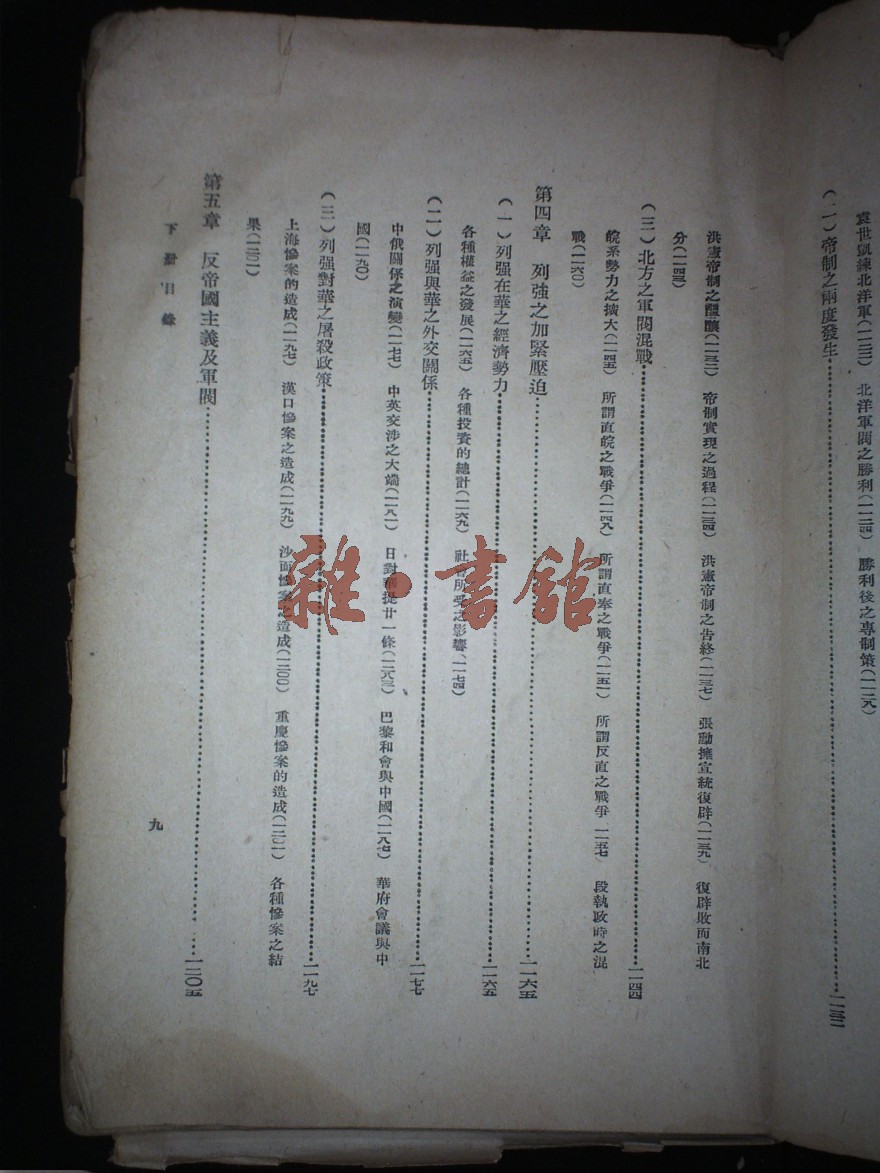 袁世凱練北洋軍(一一二二) 北洋軍閥之勝利(一一二四) 勝利後之專制策(一一二八)
(二)帝制之兩度發生…………一一三二
洪憲帝制之醞釀(一一三二) 帝制實現之過程(一一三四) 洪憲帝制之告終(一一三七) 張勳擁宣統復辟(一一三九) 復辟敗而南北
分(一一四三)
(三)北方之軍閥混戰…………一一四四
皖系勢力之擴大(一一四五) 所謂直皖之戰爭(一一四九) 所謂直奉之戰爭(一一五一) 所謂反直之戰爭 一一五七) 段執政時之混
戰(一一六〇)
第四章 列強之加緊壓迫…………一一六五
(一)列强在華之經濟勢力…………一一六五
各種權益之發展(一一六五) 各種投資的總計(一一六九) 社會所受之影響(一一七四)
(二)列强與華之外交關係…………一一七七
中俄關係之演變(一一七七) 中英交涉之大端(一一八一) 日對華提廿一條(一一八三) 巴黎和會與中國(一一八七) 華府會議與中
國(一一九〇)
(三)列强對華之屠殺政策…………一一九七
上海慘案的造成(一一九七) 漢口慘案之造成(一一九九) 沙面慘案之造成(一二〇〇) 重慶慘案的造成(一二〇一) 各種慘案之結
果(一二〇二)
第五章 反帝國主義及軍閥…………一二〇五
下册目錄
九
雜·書館